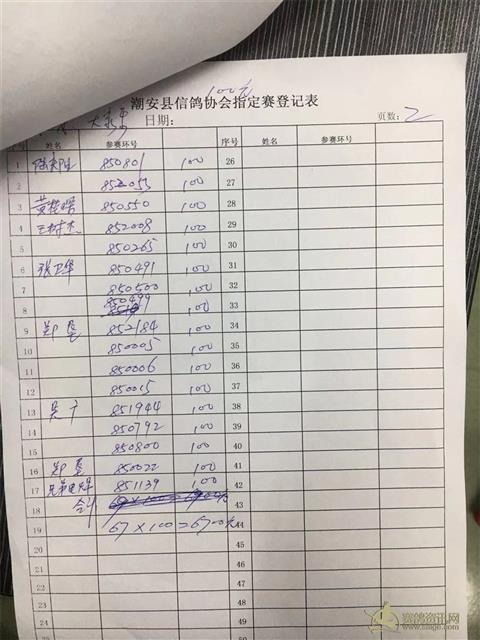 100元
潮安县信鸽协会指定赛登记表
日期： 页数：2
姓名 参赛环号 序号 姓名 参赛环号
1 850801 100 26
2 852053 100 27
3 850550 100 28
4 852008 100 29
5 850265 100 30
6 张卫华 850491 100 31
7 850500 100 32
8 850499 100 33
9 郑 852184 100 34
10 850005 100 35
11 850006 100 36
12 850015 100 37
13 吴 851944 100 38
14 850792 100 39
15 850800 100 40
16 郑 850022 100 41
17 兄弟 851139 100 42
18 合计 43
19 67×100=6700元 44
20 45
21 46
22 47
23 48
24 49
赛鸽资讯网